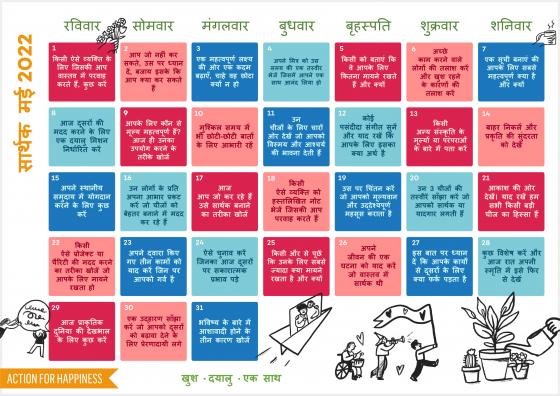 सार्थक मई 2022
रविवार सोमवार मंगलवार बुधवार बृहस्पति शुक्रवार शनिवार
1
किसी ऐसे व्यक्ति के
लिए जिसकी आप
वास्तव में परवाह
करते हैं, कुछ करें
2
आप जो नहीं कर
सकते, उस पर ध्यान
दें, बजाय इसके कि
आप क्या कर सकते
हैं
3
एक महत्वपूर्ण लक्ष्य
की ओर एक कदम
बढ़ाएँ, चाहे वह छोटा
क्यों न हो
4
अपने मित्र को उस
समय की एक तस्वीर
भेजें जिसमें आपने एक
साथ आनंद लिया हो
5
किसी को बताएं कि
वे आपके लिए
कितना मायने रखते
हैं और क्यों
6
अच्छे
काम करने वाले
लोगों की तलाश करें
और खुश रहने
के कारणों की
तलाश करें
7
एक सूची बनाएं की
आपके लिए सबसे
महत्वपूर्ण क्या है
और क्यों
8
आज दूसरों की
मदद करने के लिए
एक दयालु मिशन
निर्धारित करें
9
आपके लिए कौन से
मूल्य महत्वपूर्ण हैं?
आज ही उनका
उपयोग करने के
तरीके खोजें
10
मुश्किल समय में
भी छोटी-छोटी बातों
के लिए आभारी रहें
11
उन
चीजों के लिए चारों
ओर देखें जो आपको
विस्मय और आश्चर्य
की भावना देती हैं
12
कोई
पसंदीदा संगीत सुनें
और याद रखें कि
आपके लिए इसका
क्या अर्थ है
13
किसी
अन्य संस्कृति के
मूल्यों या परंपराओं
के बारे में पता करें
14
बाहर निकलें और
प्रकृति की सुदरता
को देखें
15
अपने स्थानीय
समुदाय में योगदान
करने के लिए कुछ
करें
16
उन लोगों के प्रति
अपना आभार प्रकट
करें जो चीजों को
बेहतर बनाने में मदद
कर रहे हैं
17
आज
आप जो कर रहे हैं
उसे सार्थक बनाने
का तरीका खोजें
18
किसी
ऐसे व्यक्ति को
हस्तलिखित नोट
भेजें जिसकी आप
परवाह करते हैं
19
उस पर चिंतन करें
जो आपको मूल्यवान
और उद्देश्यपूर्ण
महसूस कराता है
20
उन 3 चीजों की
तस्वीरें साझा करें जो
आपको सार्थक या
यादगार लगती हैं
21
आकाश की ओर
देखें। याद रखें हम
सभी किसी बड़ी
चीज का हिस्सा हैं
22
किसी
ऐसे प्रोजेक्ट या
चैरिटी की मदद करने
का तरीका खोजें जो
आपके लिए मायने
रखता हो
23
अपने द्वारा किए
गए तीन कामों को
याद करें जिन पर
आपको गर्व है
24
ऐसे चुनाव करें
जिनका आज दूसरों
पर सकारात्मक
प्रभाव पड़े
25
किसी और से पूछें
कि उनके लिए सबसे
ज्यादा क्या मायने
रखता है और क्यों
26
अपने
जीवन की एक
घटना को याद करें
जो वास्तव में
सार्थक थी
27
इस बात पर ध्यान
दें कि आपके कार्यों
से दूसरों के लिए
क्या फर्क पड़ता है
28
कुछ विशेष करें और
आज रात अपनी
स्मृति में इसे फिर
से देखें
29
आज प्राकृतिक
दुनिया की देखभाल
के लिए कुछ करें
30
एक उदहारण साँझा
करें जो आपको दूसरों
को बढ़ावा देने के
लिए प्रेरणादायी लगे
31
भविष्य के बारे में
आशावादी होने के
तीन कारण खोजें
ACTION FOR HAPPINESS
खुश · दयालु · एक साथ